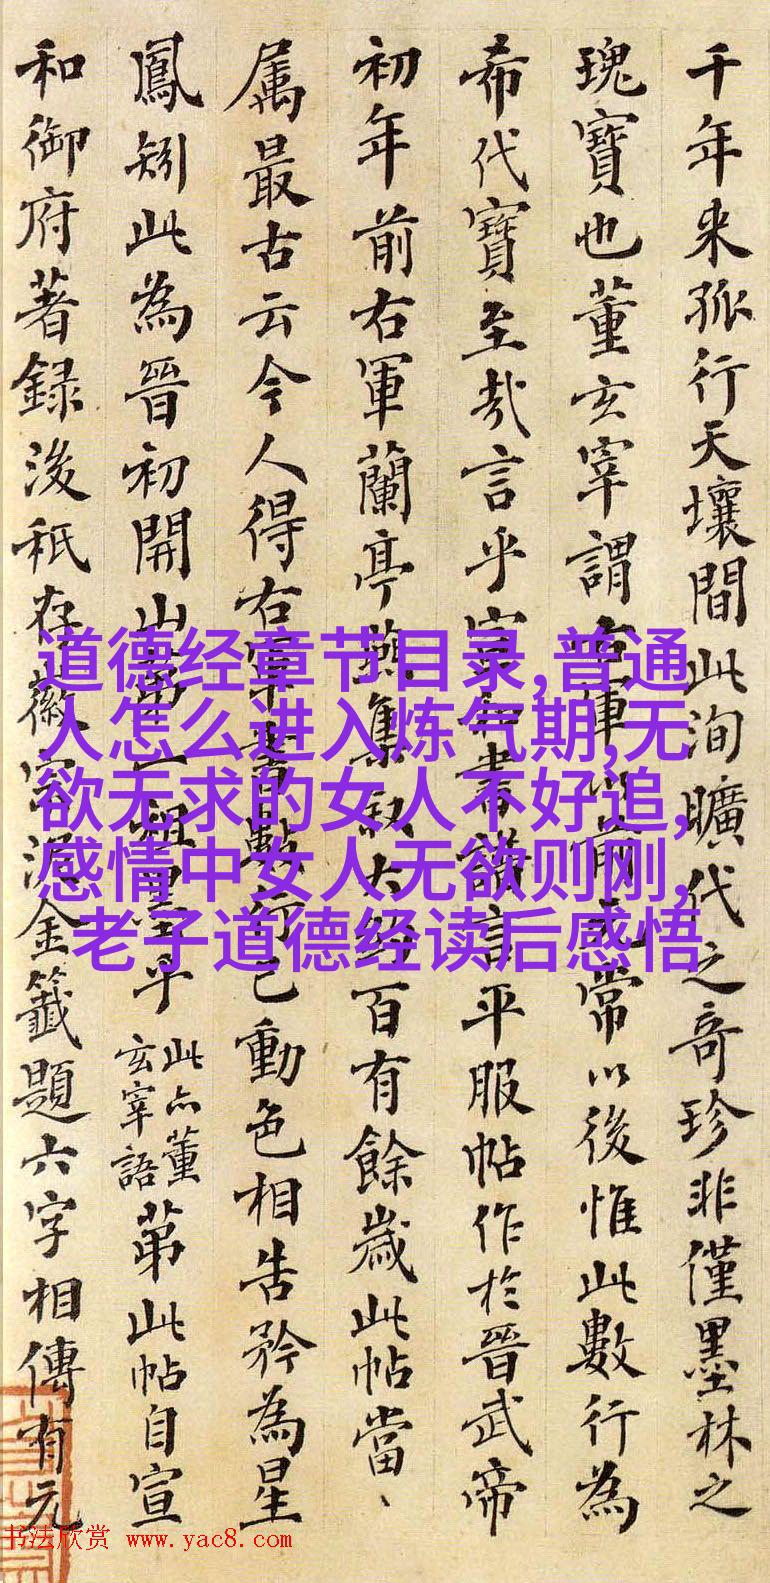 千年来孤行天壤間此洵曠代之奇珍非僅墨林之
瑰寶也董玄宰謂右軍以前元常以後惟此數行為
希代寶至哉言乎宣和書譜言平服帖作於晉武帝
初年前右軍蘭亭燕集叙大約百有餘歲此帖當、
属最古云今人得右軍書數行已動色相告矜為星
鳳矧此為晉初開山第一祖墨乎此亦董玄宰語苐此帖自宣
和御府著録後秖存徽宗泥金籤題六字相傳有元
道德经章节目录,普通
人怎么进入炼气期,无
欲无求的女人不好追,
感情中女人无欲则刚,
老子道德经读后感悟
书法欣赏 www.yac8.com